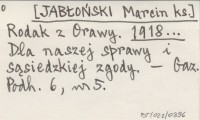 [JABŁOŃSKI Marcin ks.]
Rodak z Orawy. 1918...
Dla naszej sprawy i
sąsiedzkiej zgody. — Gaz.
Podh. 6, nr 5.
95/022/0396